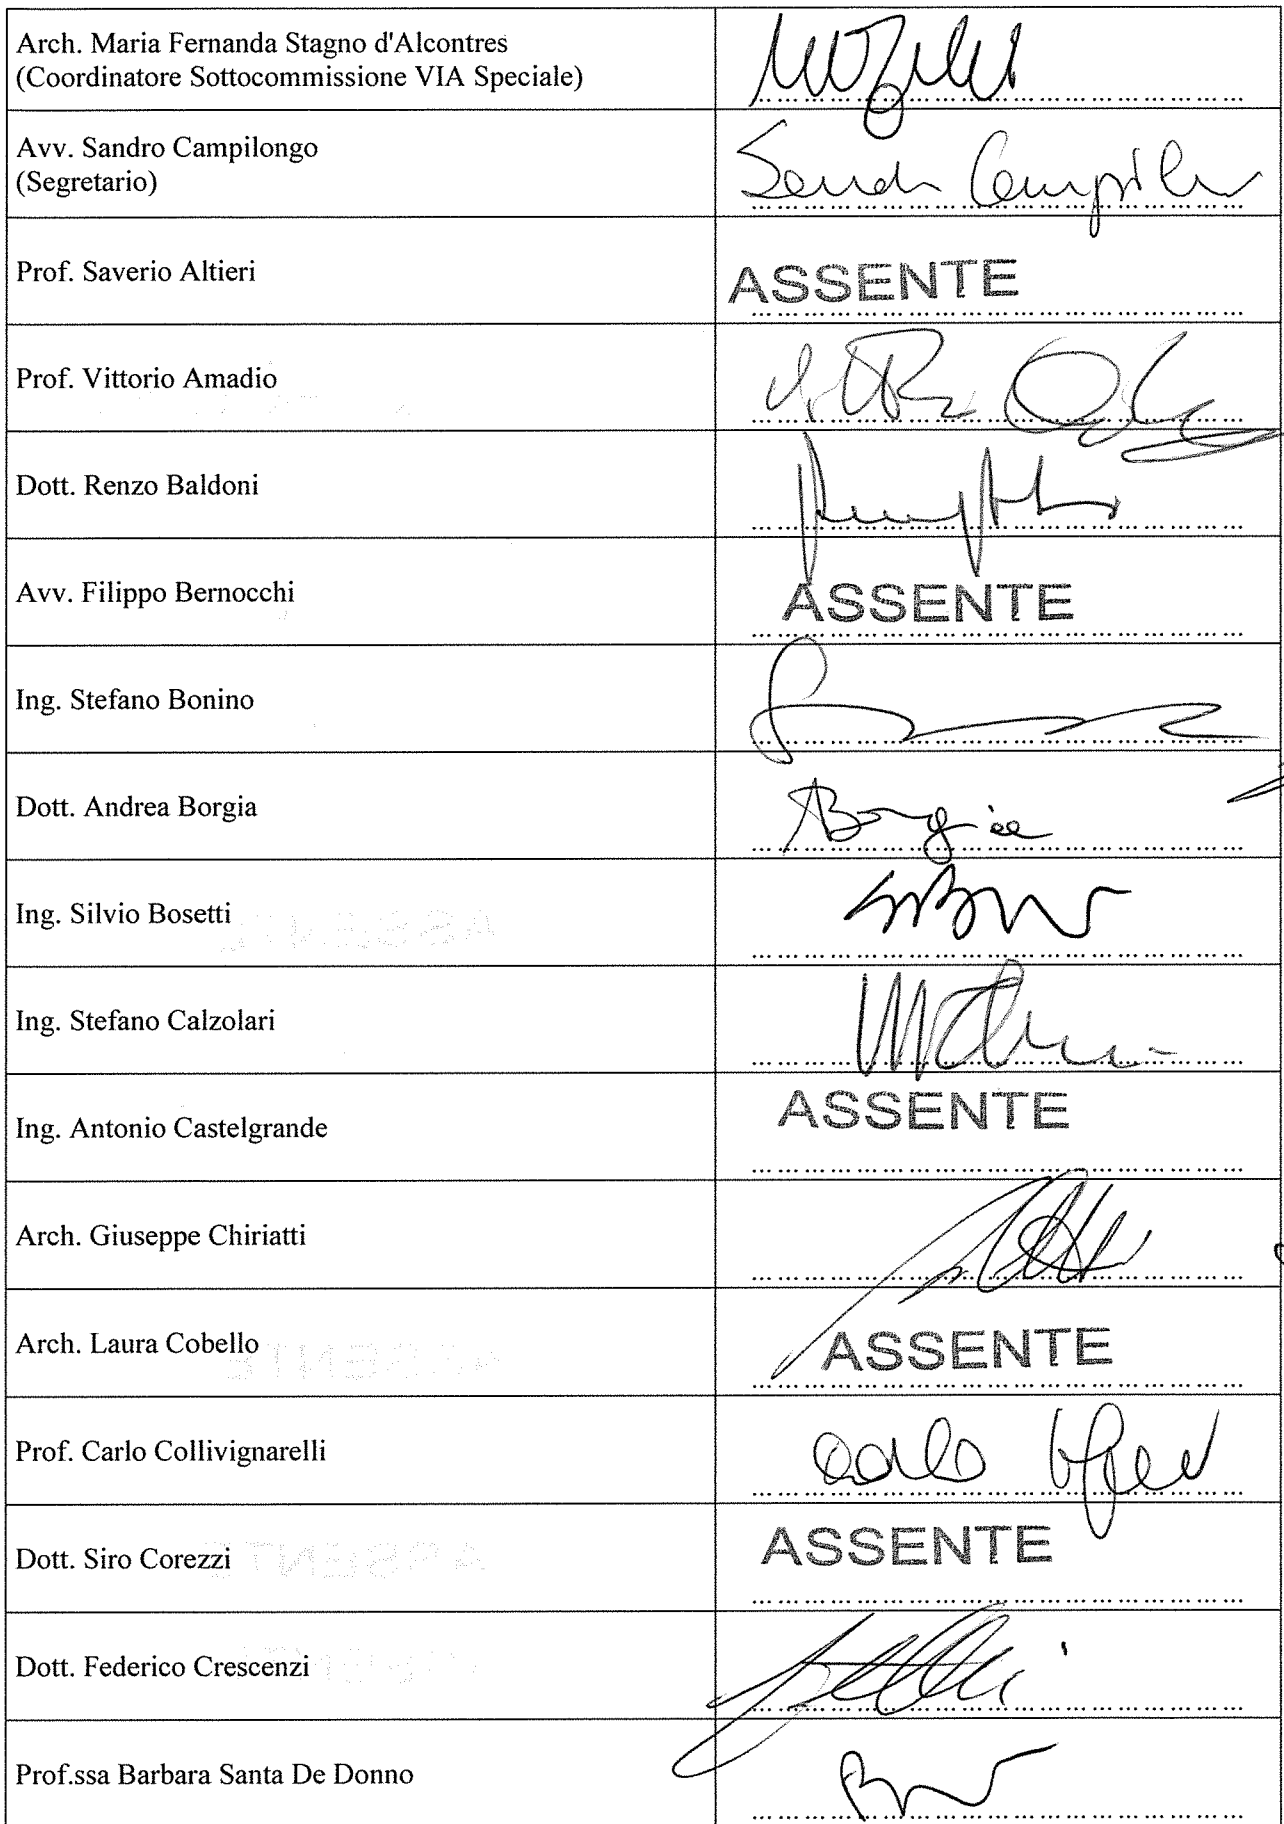 Arch. Maria Fernanda Stagno d'Alcontres
(Coordinatore Sottocommissione VIA Speciale)
Avv. Sandro Campilongo
(Segretario)
Prof. Saverio Altieri
ASSENTE
Prof. Vittorio Amadio
Dott. Renzo Baldoni
Avv. Filippo Bernocchi
ASSENTE
Ing. Stefano Bonino
Dott. Andrea Borgia
ABorgia
Ing. Silvio Bosetti
Ing. Stefano Calzolari
Ing. Antonio Castelgrande
ASSENTE
Arch. Giuseppe Chiriatti
Arch. Laura Cobello
ASSENTE
Prof. Carlo Collivignarelli
Dott. Siro Corezzi
ASSENTE
Dott. Federico Crescenzi
Prof.ssa Barbara Santa De Donno